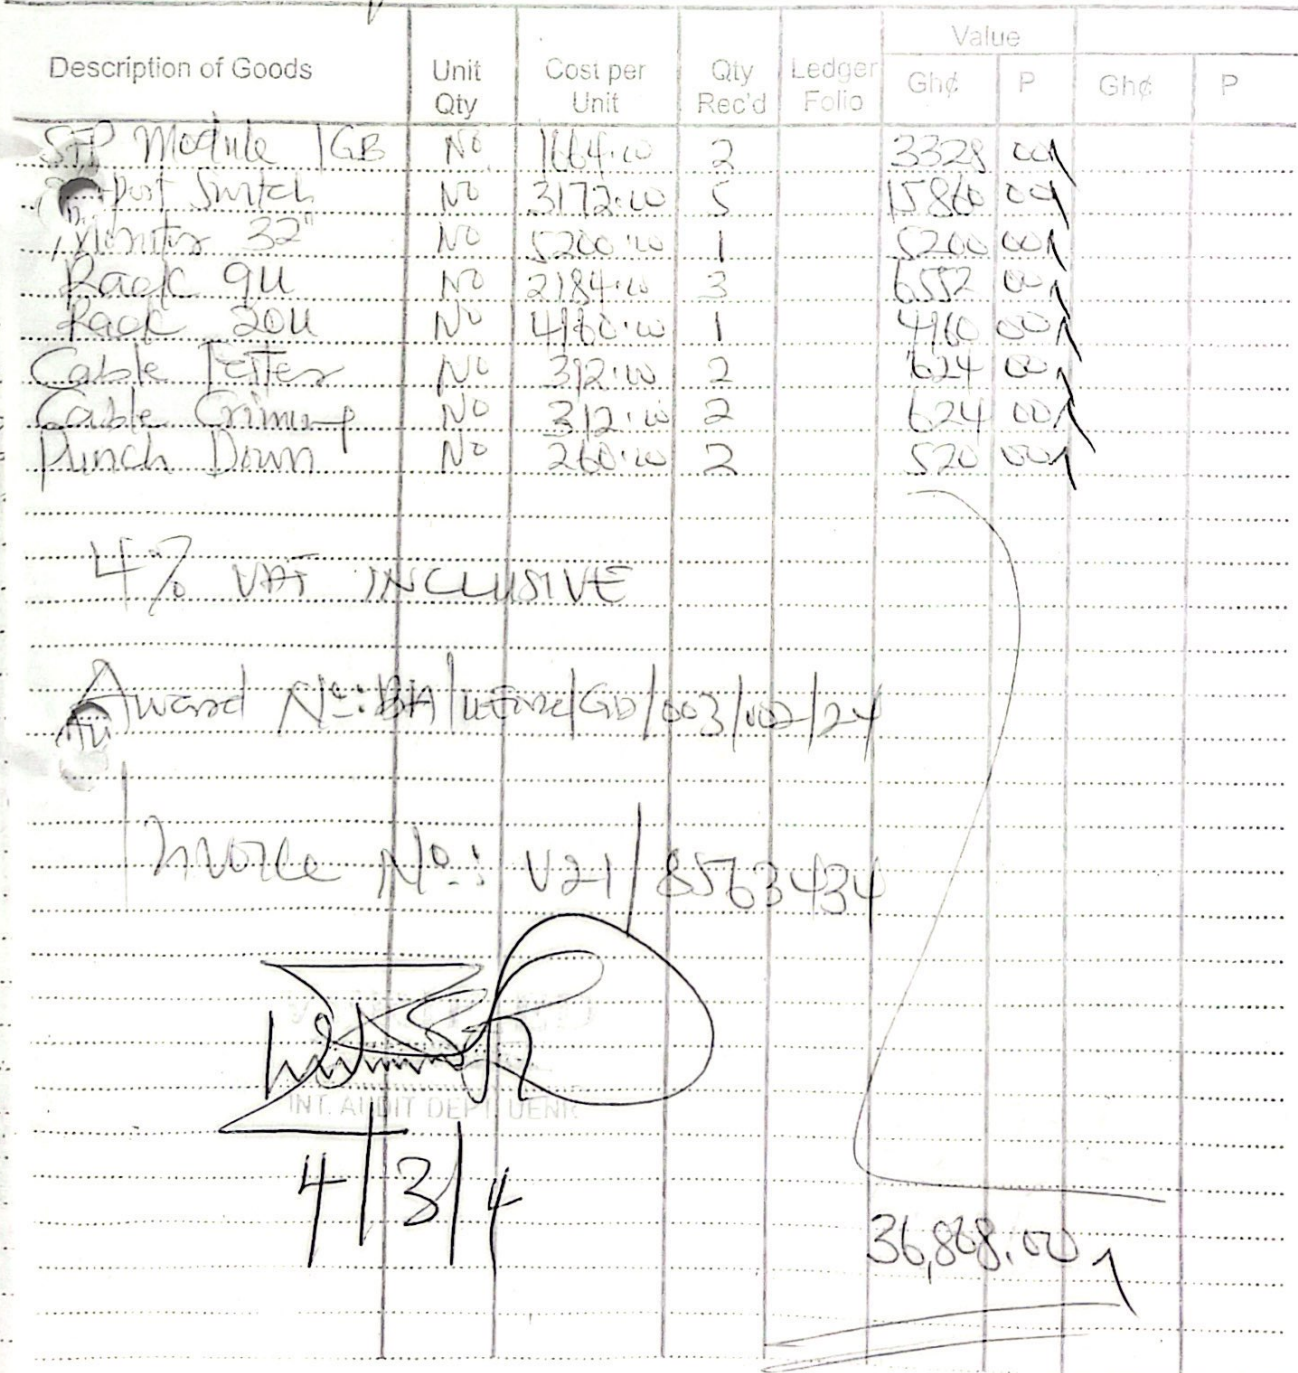 Value
Description of Goods Unit Qty Cost per Unit Qty Rec'd Ledger Folio Gh¢ P Gh¢ P
SFP Module 1GB No 1664.00 2 3328 00
Port Switch No 3172.00 5 15860 00
Monitor 32" No 5200.00 1 5200 00
Rack 9U No 2184.00 3 6552 00
Rack 20U No 4160.00 1 4160 00
Cable Tester No 312.00 2 624 00
Cable Crimp No 312.00 2 624 00
Punch Down No 260.00 2 520 00
4% VAT INCLUSIVE
Award No: BA/UENR/GD/003/002/24
Invoice No.: V21/8563434
INT. AUDIT DEPT. UENR
4/3/4
36,868.00